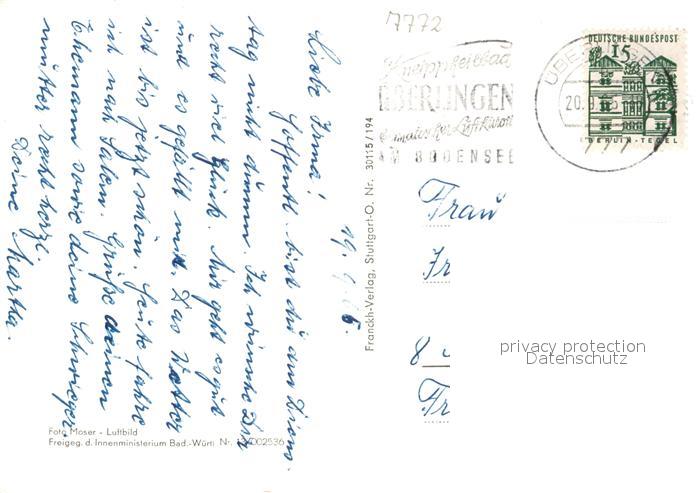 7772
Kneippheilbad
ÜBERLINGEN
AM BODENSEE
ÜBERLINGEN
20.9.
DEUTSCHE BUNDESPOST
15
BERLIN-TEGEL
19.9.
Liebe Irma!
Hoffentl. bist du am Diens-
tag nicht dumm. Ich wünsche Dir
recht viel Glück. Mir geht es gut
und es gefällt mir. Das Wetter
ist bis jetzt schön. Heute fahre
ich nach Salem. Grüße deinen
Ehemann sowie deine Schwieger-
mutter recht herzl.
Deine Martha.
Franckh-Verlag, Stuttgart-O. Nr. 30115/194
Frau
Fr
8
Fr
privacy protection
Datenschutz
Foto Moser - Luftbild
Freigeg. d. Innenministerium Bad.-Württ Nr.